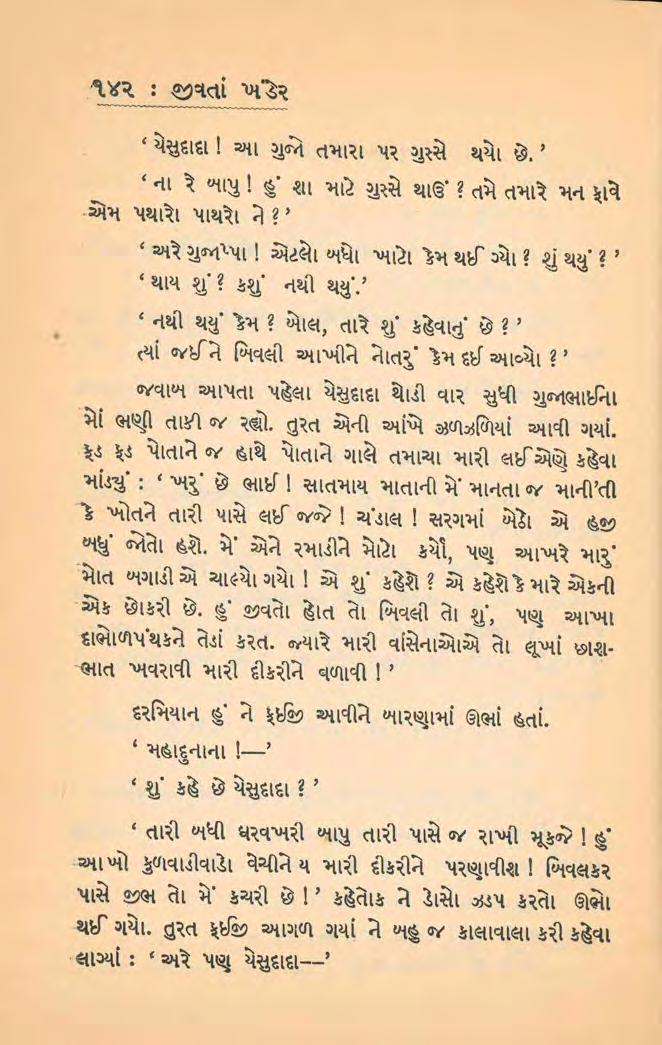 ૧૪૨ : જીવતાં ખંડેર
‘ યેસુદાદા ! આ ગુજો તમારા પર ગુસ્સે થયો છે. ’
‘ ના રે બાપુ ! હું શા માટે ગુસ્સે થાઉં ? તમે તમારે મન ફાવે
એમ પથારો પાથરો ને ? ’
‘ અરે ગુજાપ્પા ! એટલો બધો ખાટો કેમ થઈ ગ્યો ? શું થયું ? ’
‘ થાય શું ? કશું નથી થયું. ’
‘ નથી થયું કેમ ? બોલ, તારે શું કહેવાનું છે ? ’
ત્યાં જઈને બિવલી આખીને નોતરું કેમ દઈ આવ્યો ? ’
જવાબ આપતા પહેલા યેસુદાદા થોડી વાર સુધી ગુજાભાઈના
મેાં ભણી તાકી જ રહ્યો. તુરત એની આંખે ઝળઝળિયાં આવી ગયાં.
ફડ ફડ પોતાને જ હાથે પોતાને ગાલે તમાચા મારી લઈ એણે કહેવા
માંડ્યું : ‘ ખરું છે ભાઈ ! સાતમાય માતાની મેં માનતા જ માની'તી
કે ખોતને તારી પાસે લઈ જજે ! ચંડાલ ! સરગમાં બેઠો એ હજી
બધું જોતો હશે. મેં એને રમાડીને મોટો કર્યો, પણ આખરે મારું
મોત બગાડી એ ચાલ્યો ગયો ! એ શું કહેશે ? એ કહેશે કે મારે એકની
એક છોકરી છે. હું જીવતો હોત તો બિવલી તો શું, પણ આખા
દાભોળપંથકને તેડાં કરત. જ્યારે મારી વાંસેનાઓએ તો લૂખાં છાશ-
ભાત ખવરાવી મારી દીકરીને વળાવી ! ’
દરમિયાન હું ને ફઈજી આવીને બારણામાં ઊભાં હતાં.
‘ મહાદુનાના !—’
‘ શું કહે છે યેસુદાદા ? ’
‘ તારી બધી ઘરવખરી બાપુ તારી પાસે જ રાખી મૂકજે ! હું
આખો કુળવાડીવાડો વેચીને ય મારી દીકરીને પરણાવીશ ! બિવલકર
પાસે જીભ તો મેં કચરી છે ! ’ કહેતોક ને ડોસો ઝડપ કરતો ઊભો
થઈ ગયો. તુરત ફઈજી આગળ ગયાં ને બહુ જ કાલાવાલા કરી કહેવા
લાગ્યાં : ‘ અરે પણ યેસુદાદા——’